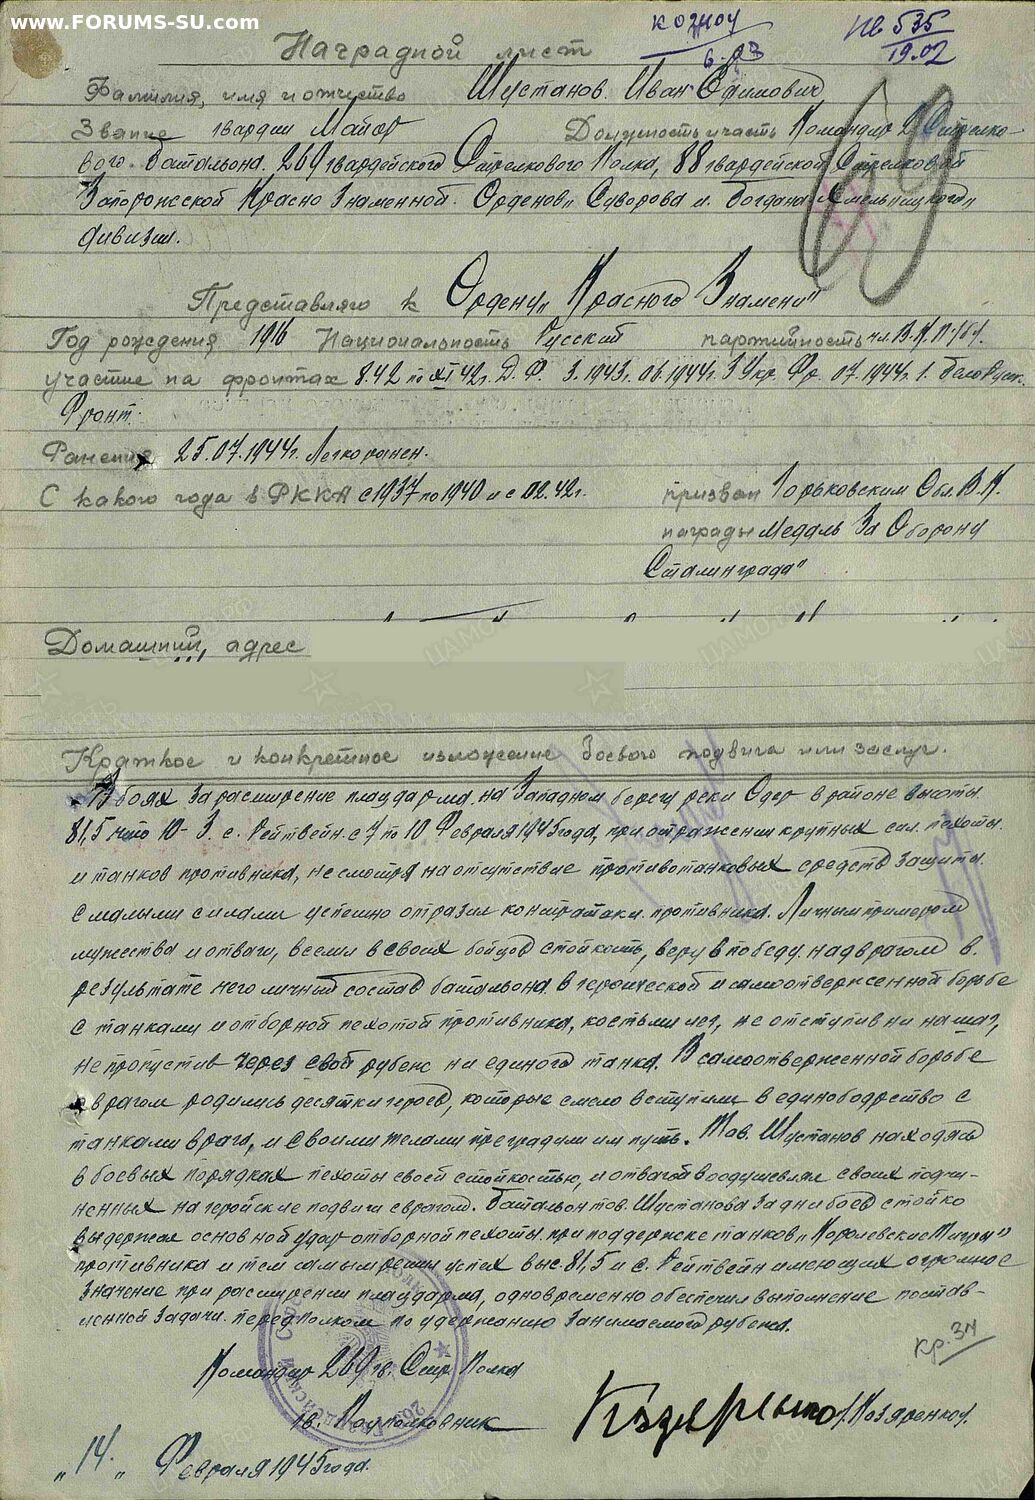 www.FORUMS-SU.com
К ОЗ МОЧ
6.03
Пв 535
19.02
69
Наградной лист
Фамилия, имя и отчество Шустанов Иван Ефимович
Звание гвардии Майор Должность и часть Командир 2 Стрелко-
вого батальона 269 гвардейского Стрелкового Полка, 88 гвардейской Стрелковой
Запорожской Красно Знаменной Орденов „Суворова и Богдана Хмельницкого"
дивизии.
Представляю к Ордену „Красного Знамени"
Год рождения 1916 Национальность Русский партийность чл. В.К.П./б/.
участие на фронтах 8.42 по XI 42г. Д.Ф. 3.1943г. 06.1944г. 3 Укр. Фр. 07.1944г. 1. Белорусск.
Фронт.
Ранения 25.07.1944г. Легко ранен.
С какого года в РККА с 1937 по 1940 и с 02.42г. призван Горьковским Обл. В.К.
награды Медаль За Оборону
Сталинграда"
Домашний, адрес
Краткое и конкретное изложение боевого подвига или заслуг.
В боях за расширение плацдарма на Западном берегу реки Одер в районе высоты
81,5 что 10-З. с. Рейтвейн. с 7 по 10 Февраля 1945 года, при отражении крупных сил. пехоты
и танков противника, не смотря на отсутствие противотанковых средств защиты
с малыми силами успешно отразил контратаки противника. Личным примером
мужества и отваги, вселил в своих бойцов стойкость, веру в победу над врагом в
результате чего личный состав батальона в героической и самоотверженной борьбе
с танками и отборной пехотой противника, костьми лег, не отступив ни на шаг,
не пропустив через свой рубеж ни единого танка. В самоотверженной борьбе
с врагом родились десятки героев, которые смело вступили в единоборство с
танками врага, и своими телами преградили им путь. Тов. Шустанов находясь
в боевых порядках пехоты своей стойкостью, и отвагой воодушевлял своих подчи-
ненных на геройские подвиги с врагом. Батальон тов. Шустанова за дни боев стойко
выдержал основной удар отборной пехоты при поддержке танков „Королевские Тигры"
противника и тем самым решил успех выс. 81,5 и с. Рейтвейн имеющих огромное
значение при расширении плацдарма, одновременно обеспечил выполнение постав-
ленной задачи перед полком по удержанию занимаемого рубежа.
кр. 3н
Командир 269 гв. Стр. Полка
гв. Подполковник /Козяренко/.
„14" Февраля 1945 года.